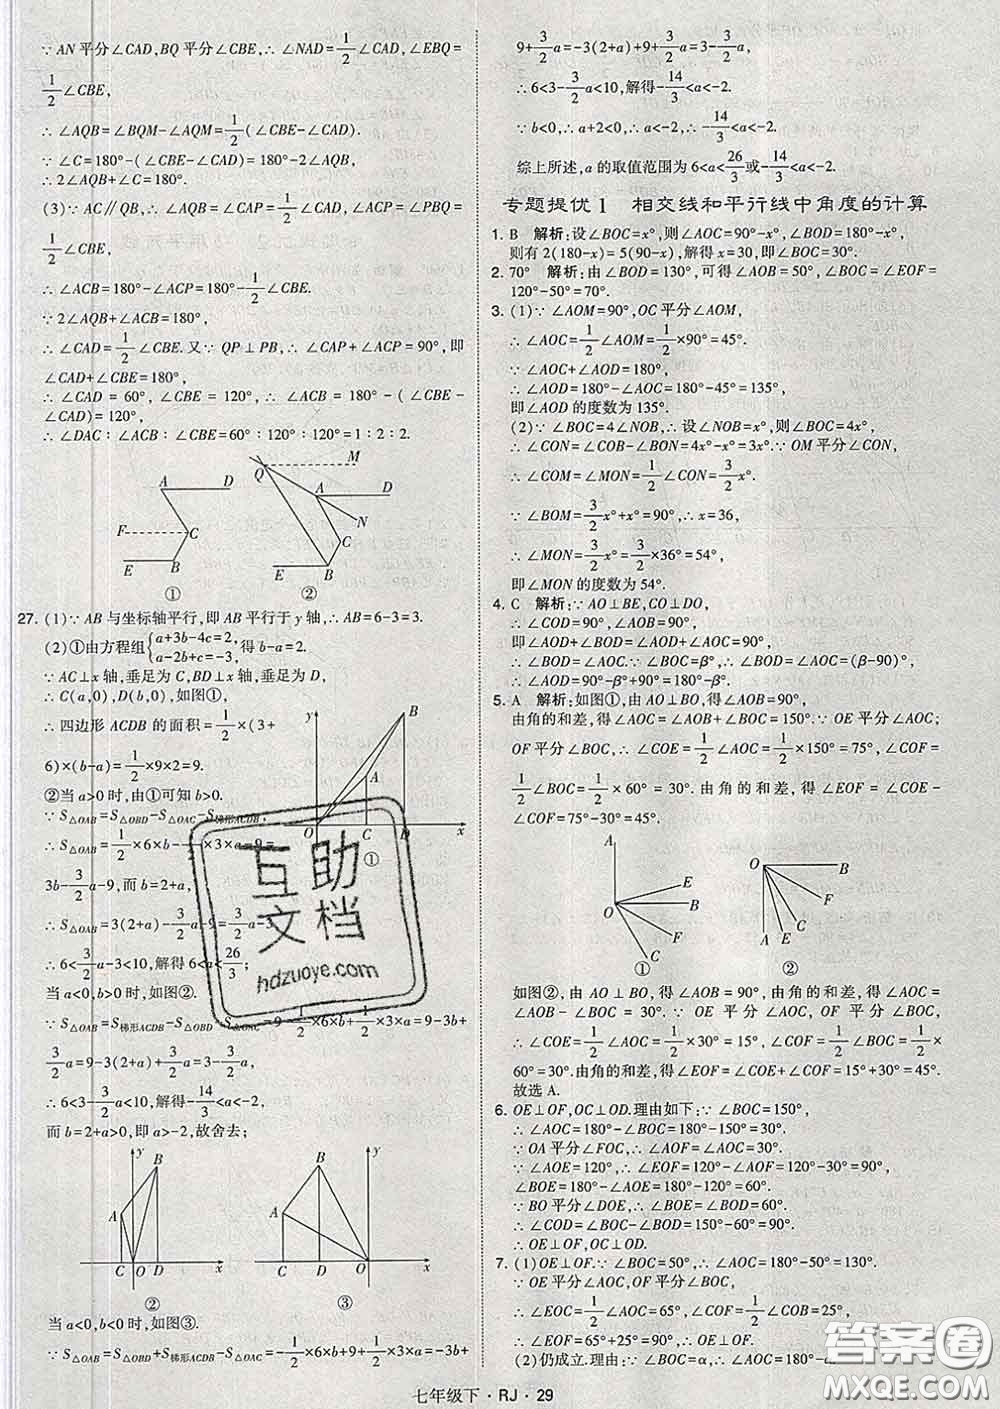 ∵ AN平分∠CAD,BQ平分∠CBE,∴ ∠NAD=1/2∠CAD,∠EBQ=
1/2∠CBE.
∴ ∠AQB=∠BQM-∠AQM=1/2(∠CBE-∠CAD).
∵ ∠C=180°-(∠CBE-∠CAD)=180°-2∠AQB,
∴ 2∠AQB+∠C=180°.
(3)∵ AC∥QB,∴ ∠AQB=∠CAP=1/2∠CAD,∠ACP=∠PBQ=
1/2∠CBE,
∴ ∠ACB=180°-∠ACP=180°-1/2∠CBE.
∵ 2∠AQB+∠ACB=180°,
∴ ∠CAD=1/2∠CBE.又∵ QP⊥PB,∴ ∠CAP+∠ACP=90°,即
∠CAD+∠CBE=180°,
∴ ∠CAD=60°,∠CBE=120°,∴ ∠ACB=180°-(∠CBE-
∠CAD)=120°,
∴ ∠DAC:∠ACB:∠CBE=60°:120°:120°=1:2:2.
A D F C E B ①
Q M A D N C E B ②
27. (1)∵ AB与坐标轴平行,即AB平行于y轴,∴ AB=6-3=3.
(2)①由方程组{a+3b-4c=2, a-2b+c=-3,得b-a=2.
∵ AC⊥x轴,垂足为C,BD⊥x轴,垂足为D,
∴ C(a,0),D(b,0),如图①,
∴ 四边形ACDB的面积=1/2×(3+
6)×(b-a)=1/2×9×2=9.
②当a>0时,由①可知b>0.
∵ S△OAB=S△OBD-S△OAC-S梯形ACDB,
∴ S△OAB=1/2×6×b-
×3×a-9=
3b-3/2a-9,而b=2+a,
∴ S△OAB=3(2+a)-3/2a-9=3/2a-3,
∴ 6<3/2a-3<10,解得6<a<26/3;
当a<0,b>0时,如图②.
∵ S△OAB=S梯形ACDB-S△OBD-S△OAC=9-1/2×6×b+1/2×3×a=9-3b+
3/2a=9-3(2+a)+3/2a=3-3/2a,
∴ 6<3-3/2a<10,解得-14/3<a<-2.
而b=2+a>0,即a>-2,故舍去;
y B A O C D x ①
y B A C O D x ②
B y A C D O x ③
当a<0,b<0时,如图③.
∵ S△OAB=S△OBD+S梯形ACDB-S△OAC=-1/2×6×b+9+1/2×3×a=-3b+
9+3/2a=-3(2+a)+9+3/2a=3-3/2a,
∴ 6<3-3/2a<10,解得-14/3<a<-2.
∵ b<0,∴ a+2<0,∴ a<-2,∴ -14/3<a<-2.
综上所述,a的取值范围为6<a<26/3或-14/3<a<-2.
专题提优1 相交线和平行线中角度的计算
1. B 解析:设∠BOC=x°,则∠AOC=90°-x°,∠BOD=180°-x°,
则有2(180-x)=5(90-x),解得x=30,即∠BOC=30°.
2. 70° 解析:由∠BOD=130°,可得∠AOB=50°,∠BOC=∠EOF=
120°-50°=70°.
3. (1)∵ ∠AOM=90°,OC平分∠AOM,
∴ ∠AOC=1/2∠AOM=1/2×90°=45°.
∵ ∠AOC+∠AOD=180°,
∴ ∠AOD=180°-∠AOC=180°-45°=135°,
即∠AOD的度数为135°.
(2)∵ ∠BOC=4∠NOB,∴ 设∠NOB=x°,∠BOC=4x°,
∴ ∠CON=∠COB-∠BON=4x°-x°=3x°.∵ OM平分∠CON,
∴ ∠COM=∠MON=1/2∠CON=3/2x°.
∵ ∠BOM=3/2x°+x°=90°,∴ x=36,
∴ ∠MON=3/2x°=3/2×36°=54°,
即∠MON的度数为54°.
4. C 解析:∵ AO⊥BE,CO⊥DO,
∴ ∠COD=90°,∠AOB=90°,
即∠AOD+∠BOD=∠AOD+∠AOC=90°,
∴ ∠BOD=∠AOC.∵ ∠BOC=β°,∴ ∠AOC=(β-90)°,
∴ ∠AOD=90°-β°+90°=180°-β°.
5. A 解析:如图①,由AO⊥BO,得∠AOB=90°,
由角的和差,得∠AOC=∠AOB+∠BOC=150°.∵ OE平分∠AOC,
OF平分∠BOC,∴ ∠COE=1/2∠AOC=1/2×150°=75°,∠COF=
1/2∠BOC=1/2×60°=30°.由角的和差,得∠EOF=∠COE-
∠COF=75°-30°=45°.
A E O B F C ①
O B F C E A ②
如图②,由AO⊥BO,得∠AOB=90°,由角的和差,得∠AOC=
∠AOB-∠BOC=30°.∵ OE平分∠AOC,OF平分∠BOC,
∴ ∠COE=1/2∠AOC=1/2×30°=15°,∠COF=1/2∠BOC=1/2×
60°=30°.由角的和差,得∠EOF=∠COF+∠COE=15°+30°=45°.
故选A.
6. OE⊥OF,OC⊥OD.理由如下:∵ ∠BOC=150°,
∴ ∠AOC=180°-∠BOC=180°-150°=30°.
∵ OA平分∠FOC,∴ ∠AOF=∠AOC=30°.
∵ ∠AOE=120°,∴ ∠EOF=∠AOE-∠AOF=120°-30°=90°,
∠BOE=180°-∠AOE=180°-120°=60°.
∵ BO平分∠DOE,∴ ∠BOE=∠BOD=60°.
∴ ∠COD=∠BOC-∠BOD=150°-60°=90°.
∴ OE⊥OF,OC⊥OD.
7. (1)∵ OE⊥OF,∠BOC=50°,∴ ∠AOC=180°-50°=130°.
∵ OE平分∠AOC,OF平分∠BOC,
∴ ∠EOC=1/2∠AOC=65°,∠COF=1/2∠COB=25°,
∴ ∠EOF=65°+25°=90°,∴ OE⊥OF.
(2)仍成立.理由:∵ ∠BOC=α,∴ ∠AOC=180°-α.
互助
文档
hdzuoye.com
答案圈
MXQE.COM
七年级下·RJ·29